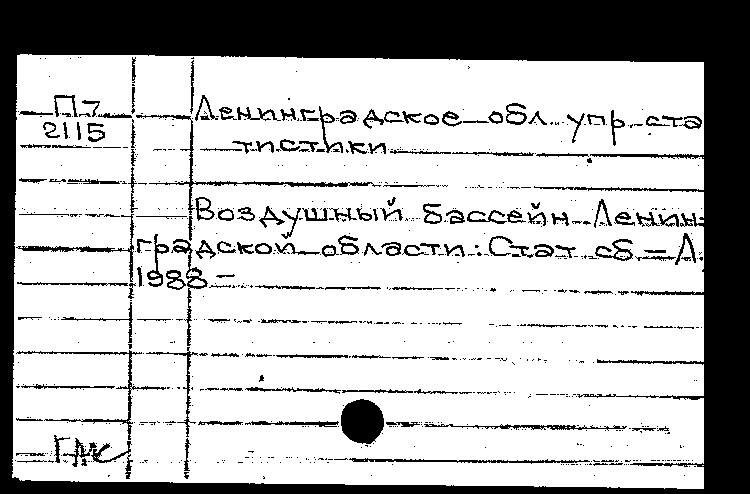 П7
2115
Ленинградское обл. упр. ста
тистики
Воздушный бассейн Ленин-
градской области: Стат. сб. – Л.,
1988 –